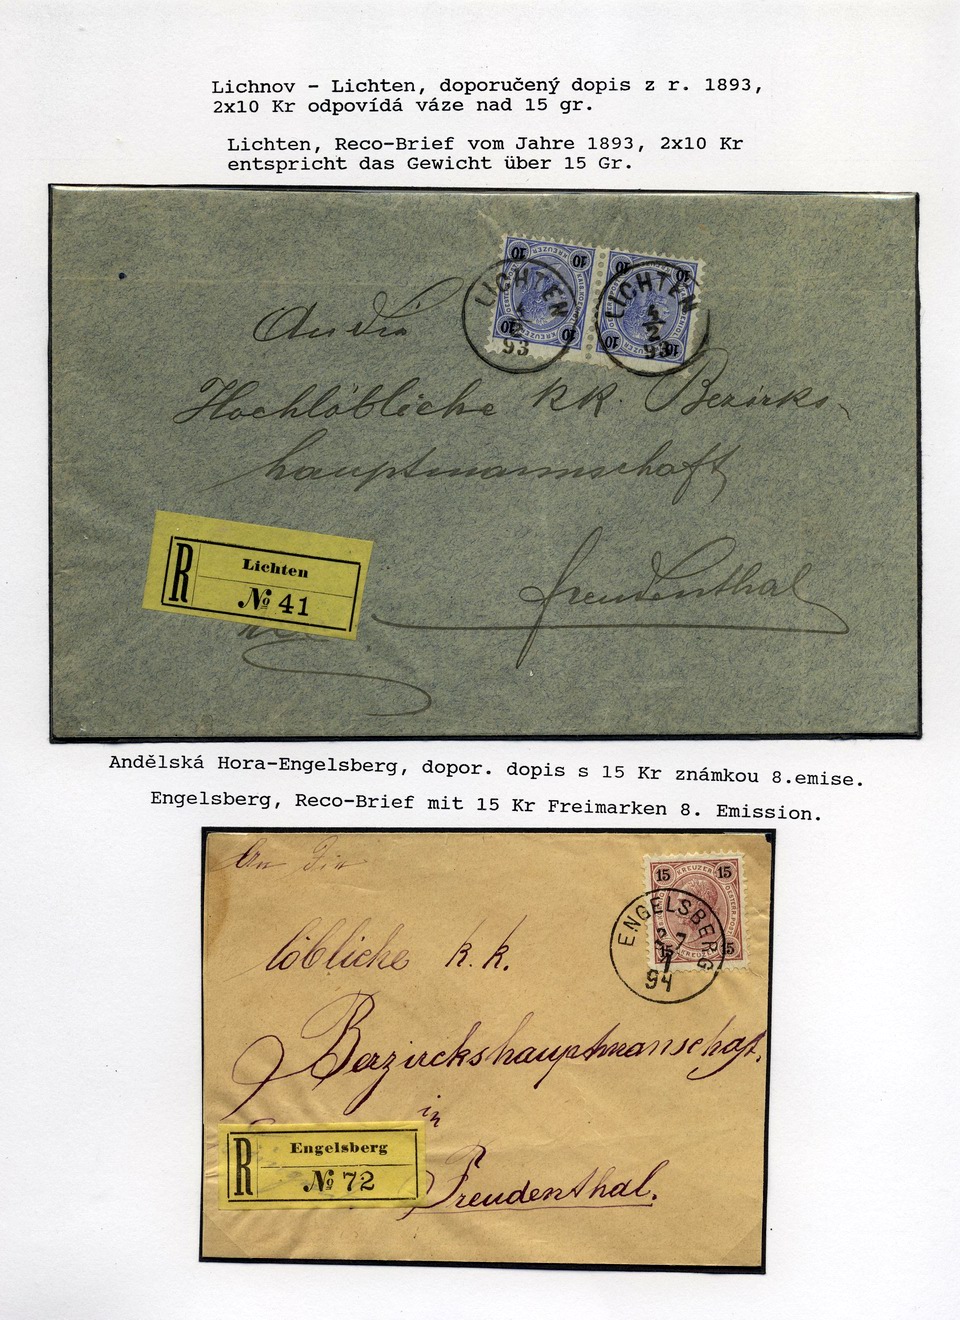 Lichnov - Lichten, doporučený dopis z r. 1893,
2x10 Kr odpovídá váze nad 15 gr.
Lichten, Reco-Brief vom Jahre 1893, 2x10 Kr
entspricht das Gewicht über 15 Gr.
10 10 10 10
10 10 10 10
KREUZER
LICHTEN
4
2
93
LICHTEN
4
2
93
An die
Hochlöbliche k.k. Bezirks-
hauptmannschaft
Freudenthal
R
Lichten
№ 41
Andělská Hora-Engelsberg, dopor. dopis s 15 Kr známkou 8.emise.
Engelsberg, Reco-Brief mit 15 Kr Freimarken 8. Emission.
An die
löbliche k. k.
Berzirckshauptmanschaft.
in
Freudenthal.
15 KREUZER 15
15 15
ENGELSBERG
27
1
94
R
Engelsberg
№ 72